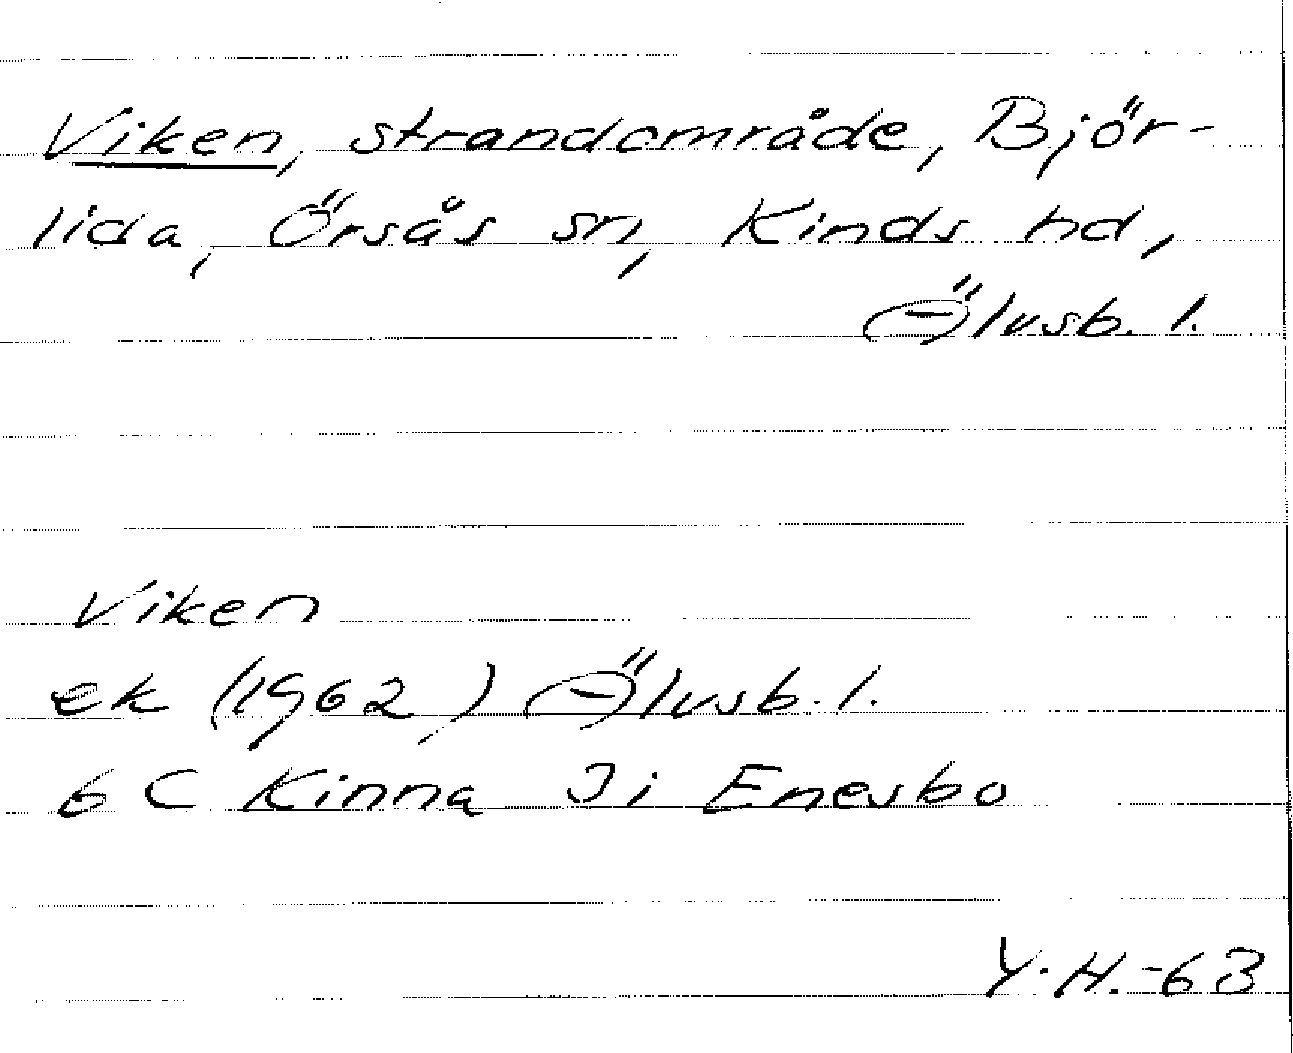 Viken, strandområde, Björ-
lida, Örsås sn, Kinds hd,
Älvsb. l.
Viken
ek (1962) Älvsb. l.
6 C Kinna Ji Enesbo
Y.H.-63